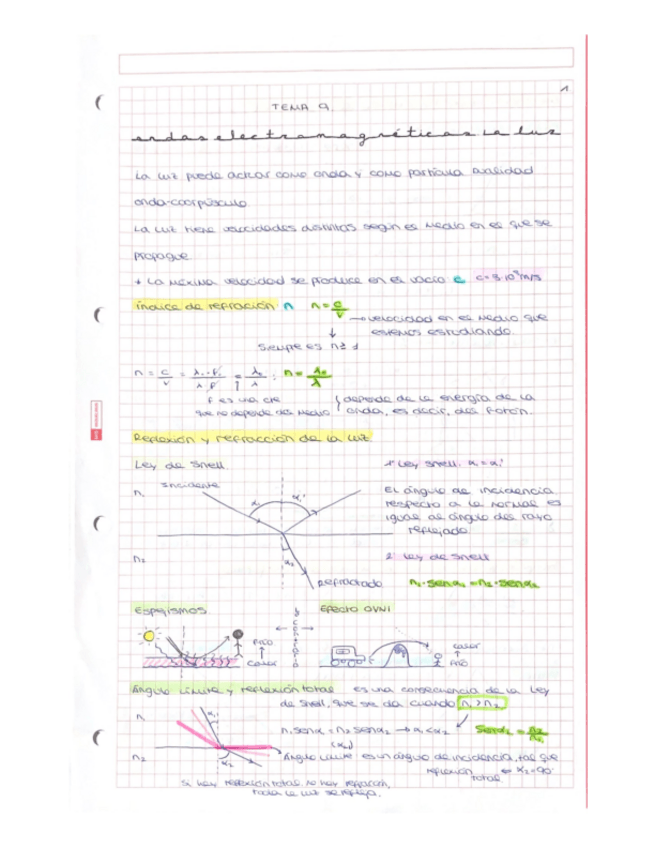 1
TEMA 9.
ondas electromagnéticas La luz
La luz puede actuar como onda y como partícula dualidad
onda-coorpúsculo.
La luz tiene velocidades distintas según el medio en el que se
propague.
* La máxima velocidad se produce en el vacío c c = 3·10⁸ m/s
Índice de refracción: n n = c/v
→ velocidad en el medio que
estemos estudiando.
Siempre es n ≥ 1
n = c/v = λ₀·f/λ·f = λ₀/λ ; n = λ₀/λ
f es una cte
que no depende del medio
depende de la energía de la
onda, es decir, del fotón.
Reflexión y refracción de la luz
Ley de Snell
1ª Ley Snell: α₁ = α₁'
n₁
Incidente
α₁
α₁'
El ángulo de incidencia
respecto a la normal es
igual al ángulo del rayo
reflejado.
n₂
α₂
2ª Ley de Snell
Refractado
n₁·senα₁ = n₂·senα₂
Espejismos
contrario
Efecto OVNI
Frío
Calor
calor
frío
Ángulo límite y reflexión total es una consecuencia de la Ley
de Snell, que se da cuando n₁ > n₂
n₁
α₁
n₁ senα = n₂ senα₂ → α₁ < α₂
n₂
α₂
Ángulo límite es un ángulo de incidencia, tal que
reflexión total
α₂ = 90°
Si hay reflexión total no hay refracción,
toda la luz se refleja.